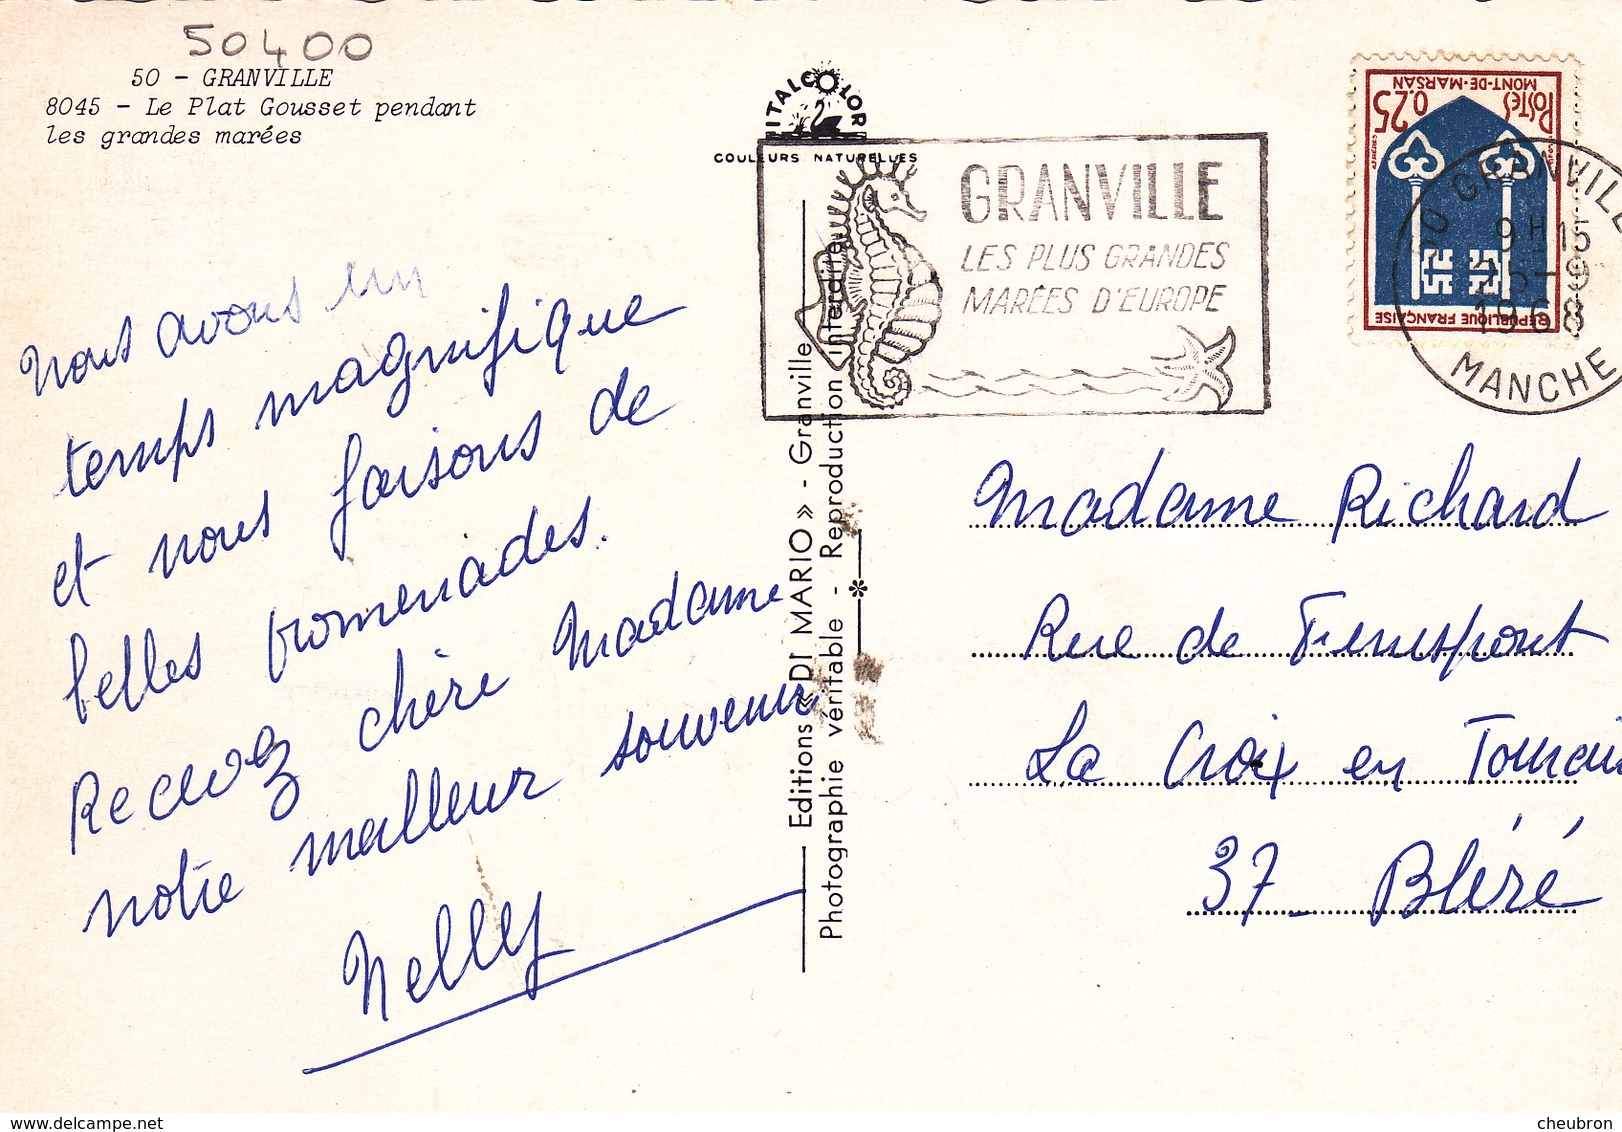 50400
50 - GRANVILLE
8045 - Le Plat Gousset pendant
les grandes marées
ITALCOLOR
COULEURS NATURELLES
GRANVILLE
LES PLUS GRANDES
MARÉES D'EUROPE
POSTES 0.25
MONT-DE-MARSAN
RÉPUBLIQUE FRANÇAISE
50 GRANVILLE
9H15
15-9
1968
MANCHE
Nous avons un
temps magnifique
et nous faisons de
belles promenades.
Recevez chère Madame
notre meilleur souvenir
Nelly
Editions « DI MARIO » - Granville
Photographie véritable - Reproduction interdite
Madame Richard
Rue de
La Croix en Tourai
37_ Bléré
delcampe.net
cheubron